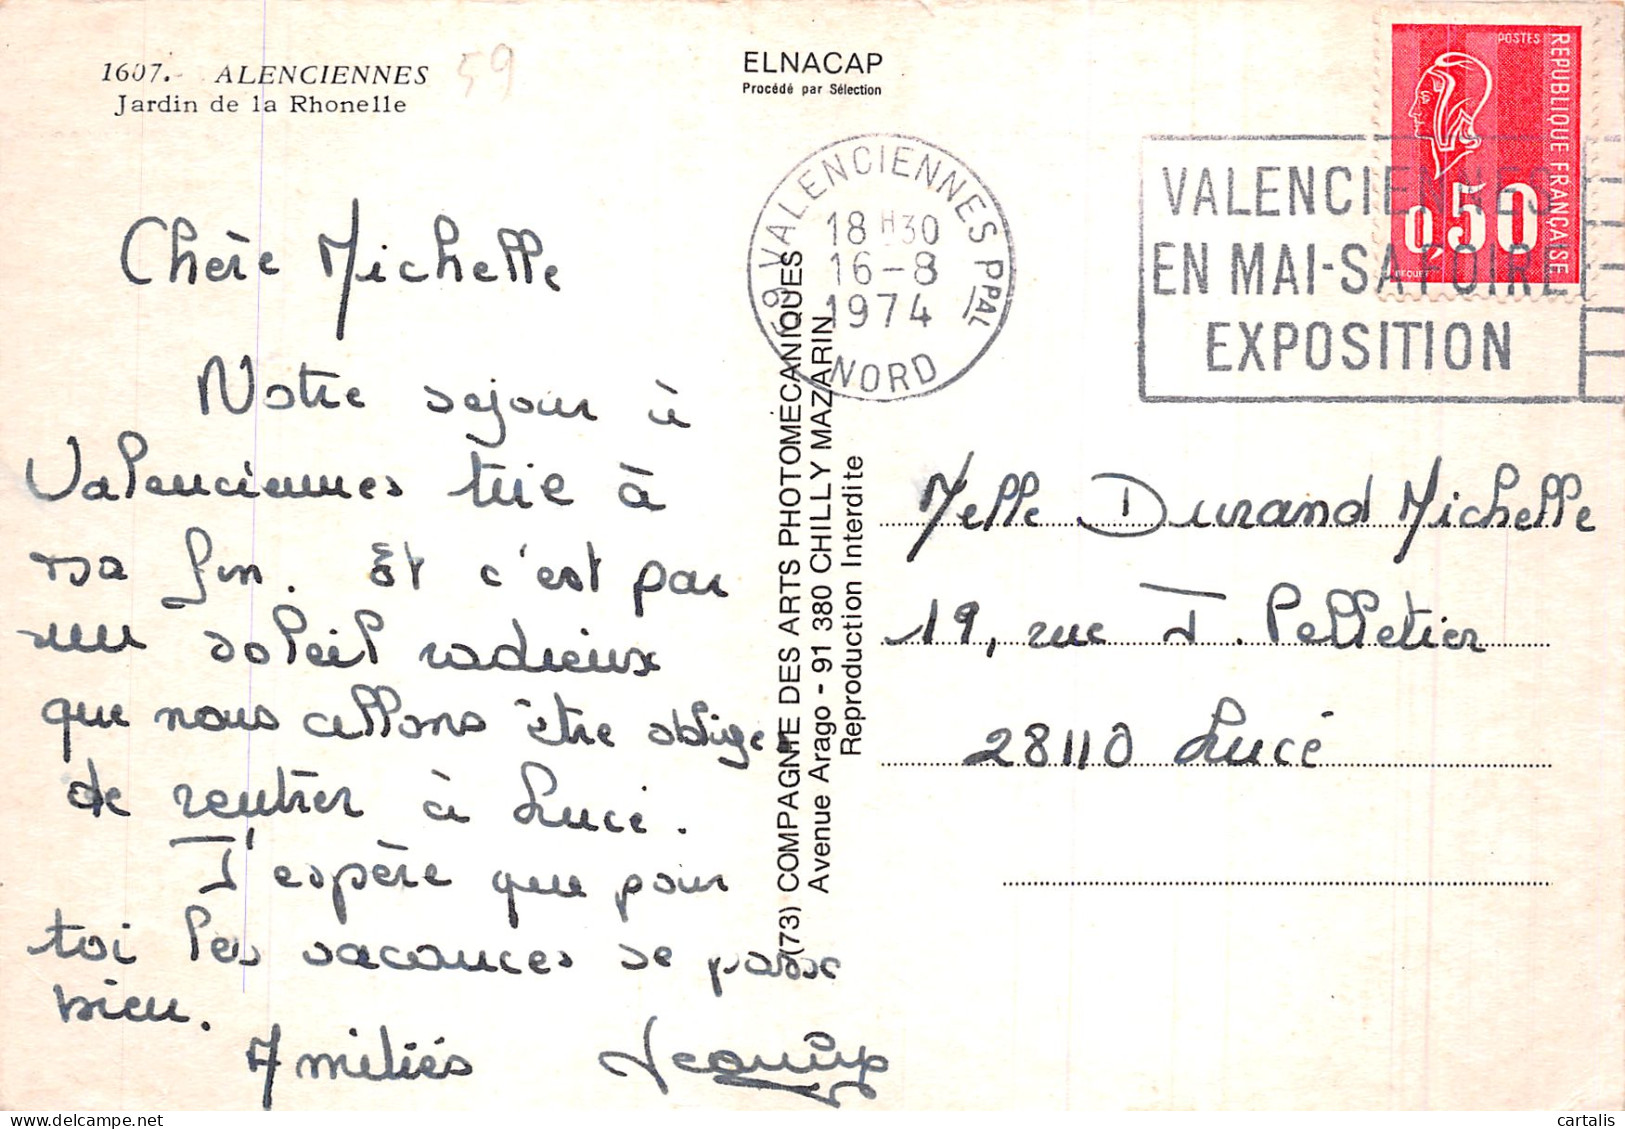 1607. - ALENCIENNES
Jardin de la Rhonelle
59
ELNACAP
Procédé par Sélection
59 VALENCIENNES PPAL
18 H30
16-8
1974
NORD
VALENCIENNES
EN MAI-SA FOIRE
EXPOSITION
POSTES
REPUBLIQUE FRANÇAISE
0,50
BEQUET
Chère Michelle
Notre sejour à
Valenciennes tire à
sa fin. Et c'est par
un soleil radieux
que nous allons être obliger
de rentrer à Lucé.
J'espère que pour
toi les vacances se passe
bien.
Amitiés
(73) COMPAGNIE DES ARTS PHOTOMÉCANIQUES
Avenue Arago - 91 380 CHILLY MAZARIN
Reproduction Interdite
Melle Durand Michelle
19, rue J. Pelletier
28110 Lucé
cartalis